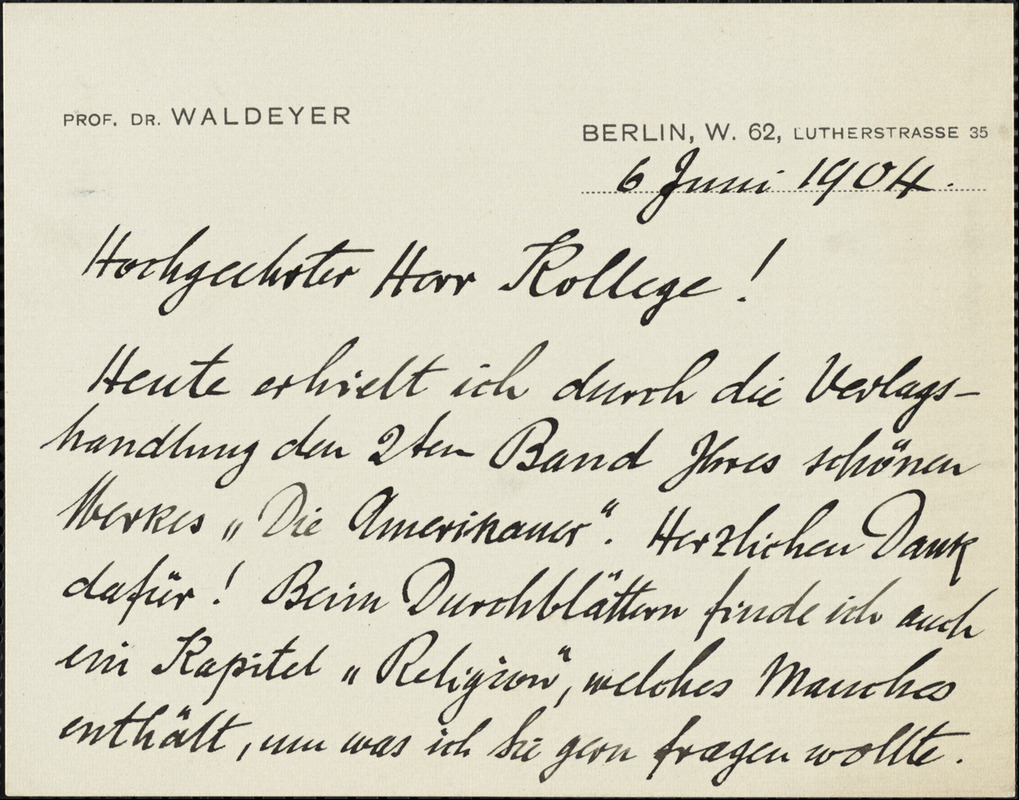 PROF. DR. WALDEYER
BERLIN, W. 62, LUTHERSTRASSE 35
6 Juni 1904.
Hochgeehrter Herr Kollege!
Heute erhielt ich durch die Verlags-
handlung den 2ten Band Ihres schönen
Werkes „Die Amerikaner“. Herzlichen Dank
dafür! Beim Durchblättern finde ich auch
ein Kapitel „Religion“, welches Manches
enthält, um was ich Sie gern fragen wollte.